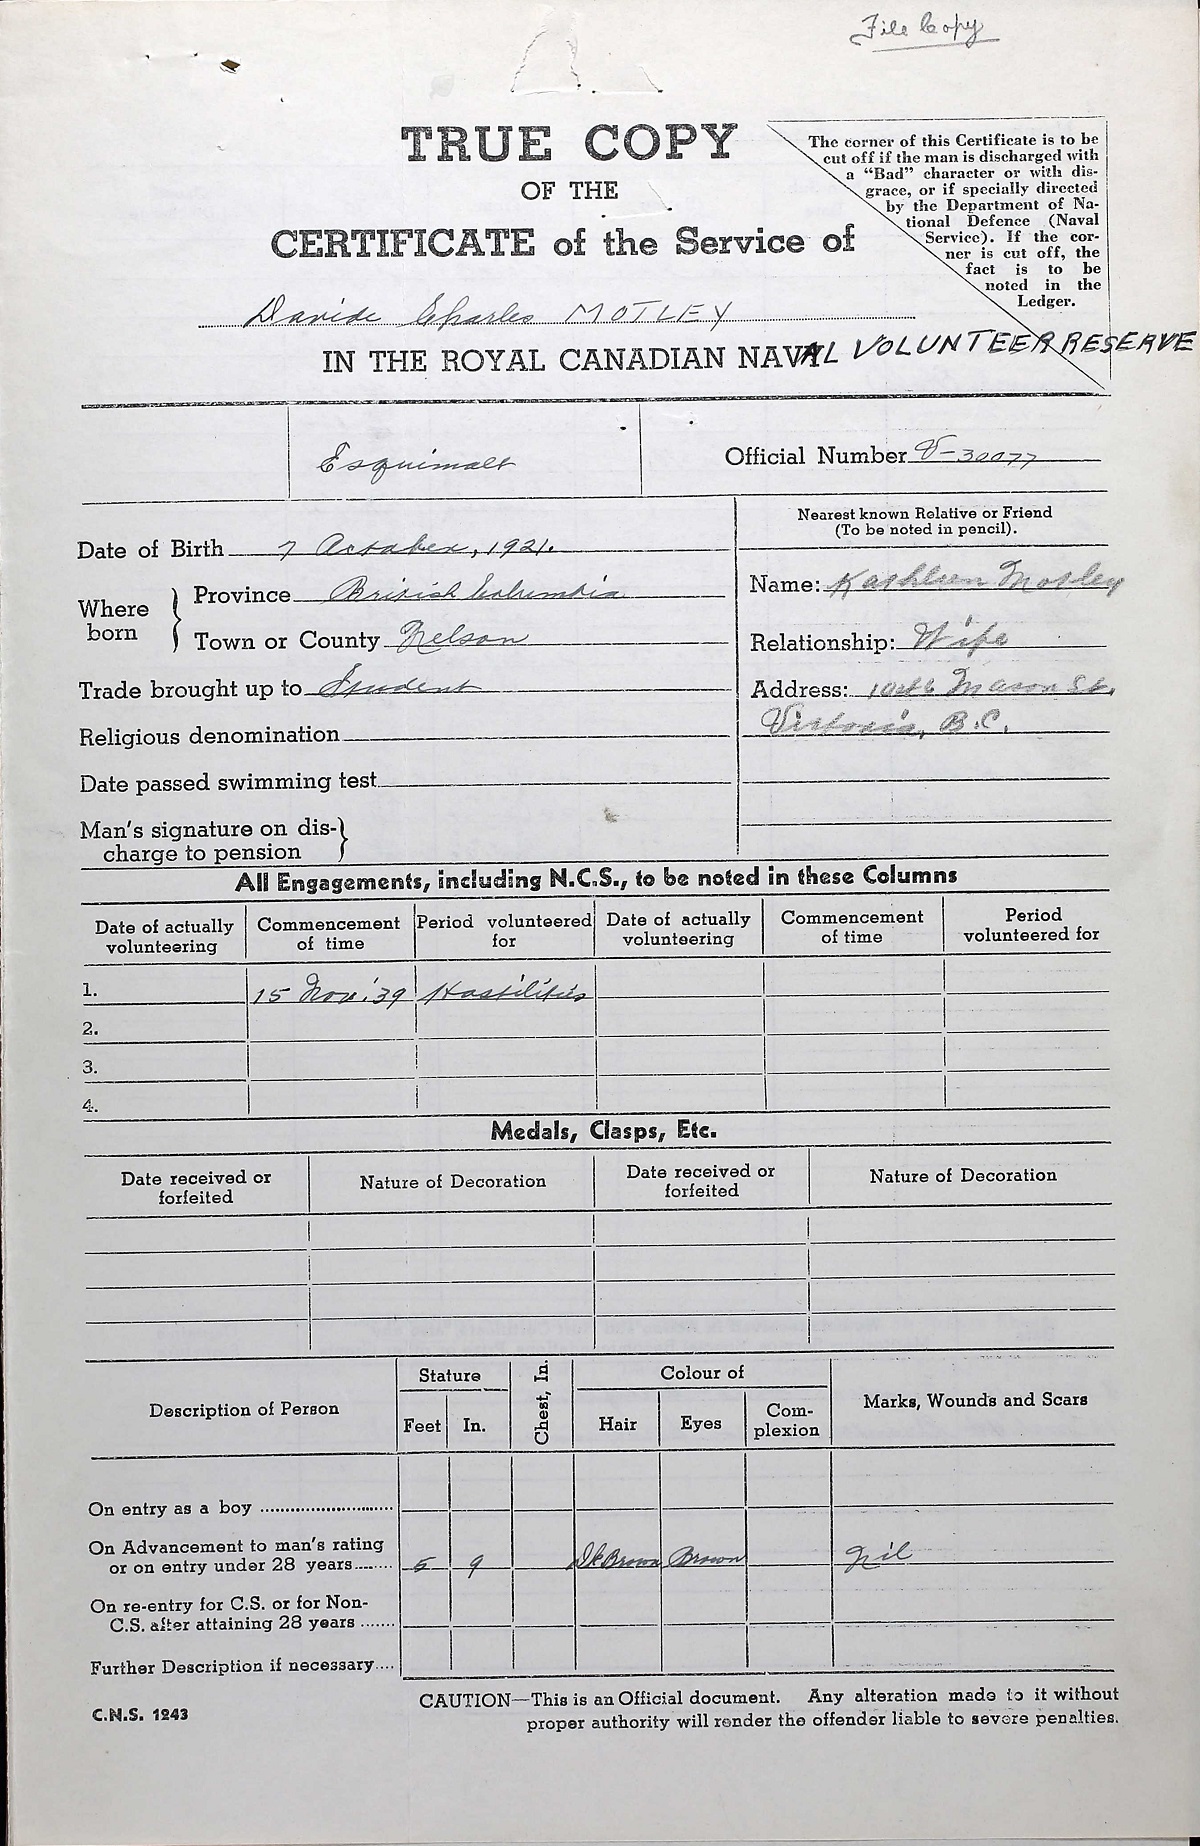 File Copy
TRUE COPY
OF THE
CERTIFICATE of the Service of
The corner of this Certificate is to be
cut off if the man is discharged with
a "Bad" character or with dis-
grace, or if specially directed
by the Department of Na-
tional Defence (Naval
Service). If the cor-
ner is cut off, the
fact is to be
noted in the
Ledger.
Charles MOTLEY
IN THE ROYAL CANADIAN NAVAL VOLUNTEER RESERVE
Esquimalt
Official Number V-30077
Date of Birth 7 October, 1921.
Where born
Province British Columbia
Town or County Nelson
Trade brought up to Student
Religious denomination
Date passed swimming test
Man's signature on dis-
charge to pension
Nearest known Relative or Friend
(To be noted in pencil).
Name: Kathleen Motley
Relationship: Wife
Address: Mason St.
Victoria, B.C.
All Engagements, including N.C.S., to be noted in these Columns
Date of actually volunteering Commencement of time Period volunteered for Date of actually volunteering Commencement of time Period volunteered for
1. 15 Nov. '39 Hostilities
2.
3.
4.
Medals, Clasps, Etc.
Date received or forfeited Nature of Decoration Date received or forfeited Nature of Decoration
Description of Person Stature Feet In. Chest, In. Colour of Hair Eyes Com-plexion Marks, Wounds and Scars
On entry as a boy
On Advancement to man's rating
or on entry under 28 years 5 9 Dk Brown Brown Nil
On re-entry for C.S. or for Non-
C.S. after attaining 28 years
Further Description if necessary
C.N.S. 1243
CAUTION—This is an Official document. Any alteration made to it without
proper authority will render the offender liable to severe penalties.